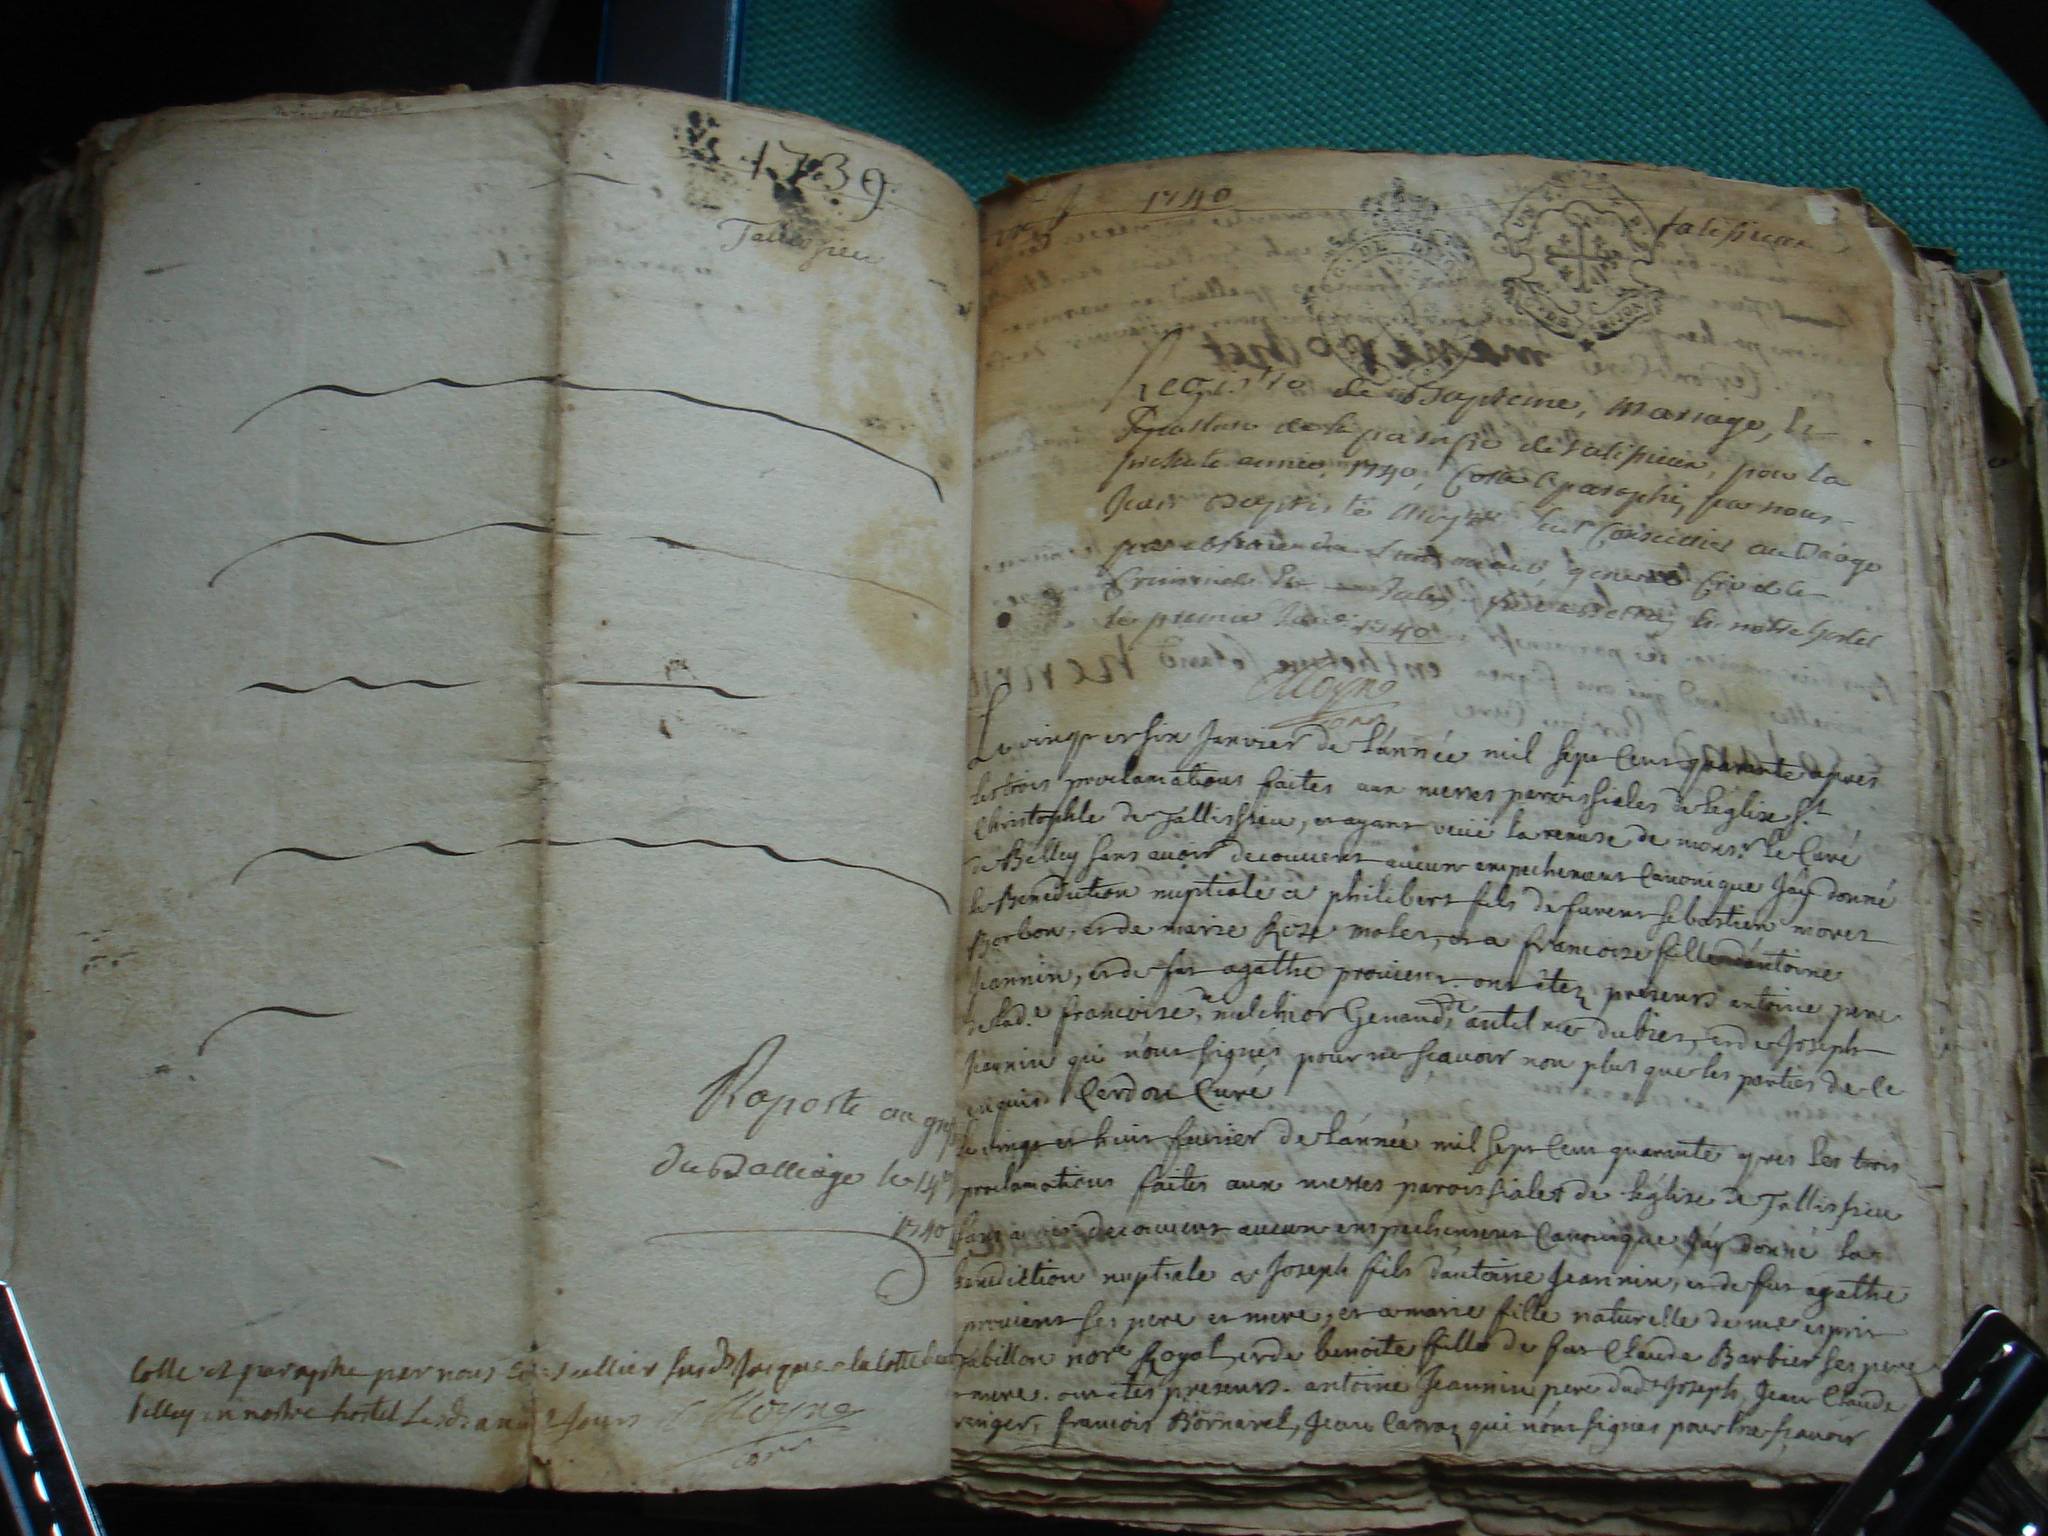 1739
Talissieu
Raporté au greffe
du Balliage le 14e
1740
Cotté et paraphé par nous Conseiller susdt jusques a la cotte
Belley en nostre hostel lesd an et jours Moyne
1740
talissieu
Registre de Bapteme, Mariage, &
sepulture de la paroisse de talissieu, pour la
presente année 1740, Cotté & paraphé, par nous
Jean Baptiste Moyne Conseiller au Bâage
general Civil &
Criminel de Belley & notre hostel
le premier Janer 1740
Moyne
Le vingt et six Janvier de l'année mil sept Cent quarante apres
les trois proclamations faites aux messes paroissiales de l'eglise St
Christophle de Tallissieu, et ayant veüe la remise de monsr le Curé
de Belley sans avoir decouvert aucun empechement Canonique J'ay donné
la Benediction nuptiale a philibert fils de furent sebastien moret
Borbon, et de marie Roze molet, et a francoise fille d'antoine
Jeannin, et de fut agathe provient. ont étez presents antoine pere
de lad.e francoise, melchior Genaud, antelme dubiez, et de Joseph
Jeannin qui n'ont signés pour ne sçavoir non plus que les parties de ce
enquis. Cerdon Curé
Le vingt et huit fevrier de l'année mil sept Cent quarante apres les trois
proclamations faites aux messes paroissiales de l'église de Tallissieu
sans avoir decouvert aucun empechement Canonique J'ay donné la
benediction nuptiale a Joseph fils d'antoine Jeannin, et de fut agathe
provient ses pere et mere, et a marie fille naturelle de me esprit
rabillon nore Royal et de benoite fille de fut Claude Barbier ses pere
mere. ont étes presents. antoine Jeannin pere dudt Joseph, Jean Claude
renger, francois Bornarel, Jean Carraz qui n'ont signes pour ne sçavoir